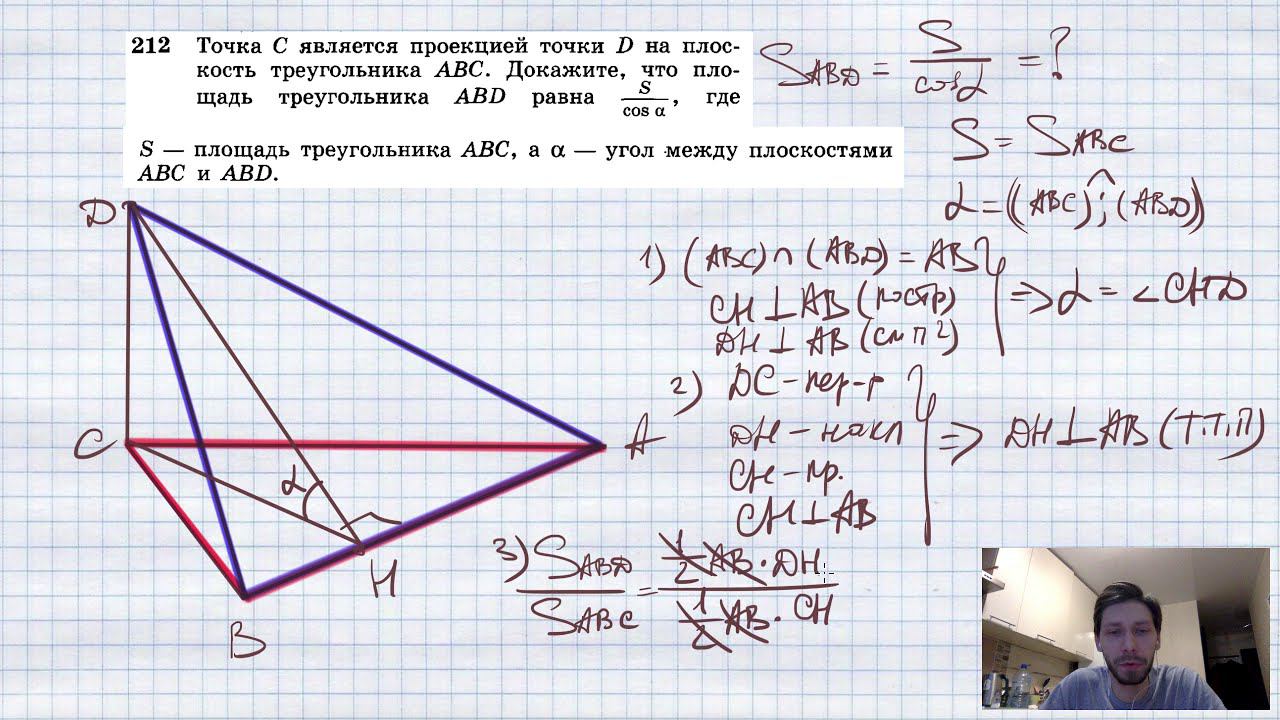 212 Точка C является проекцией точки D на плос-
кость треугольника ABC. Докажите, что пло-
щадь треугольника ABD равна S/cos α, где
S — площадь треугольника ABC, а α — угол между плоскостями
ABC и ABD.
S_ABD = S/cosα = ?
S = S_ABC
α = ((ABC) ^; (ABD))
1) (ABC) ∩ (ABD) = AB
CH ⊥ AB (постр)
DH ⊥ AB (см п 2)
=> α = ∠CHD
2) DC - пер-р
DH - накл
CH - пр.
CH ⊥ AB
=> DH ⊥ AB (Т.Т.П)
3) S_ABD/S_ABC = (1/2 AB · DH)/(1/2 AB · CH)
D
C
A
α
H
B